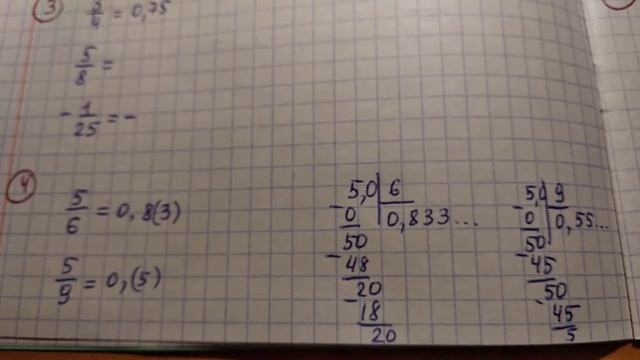 3
3/4 = 0,75
5/8 =
- 1/25 = -
4
5/6 = 0,8(3)
5/9 = 0,(5)
5,0 6
- 0 0,833...
50
- 48
20
- 18
20
5,0 9
- 0 0,55...
50
- 45
50
- 45
5